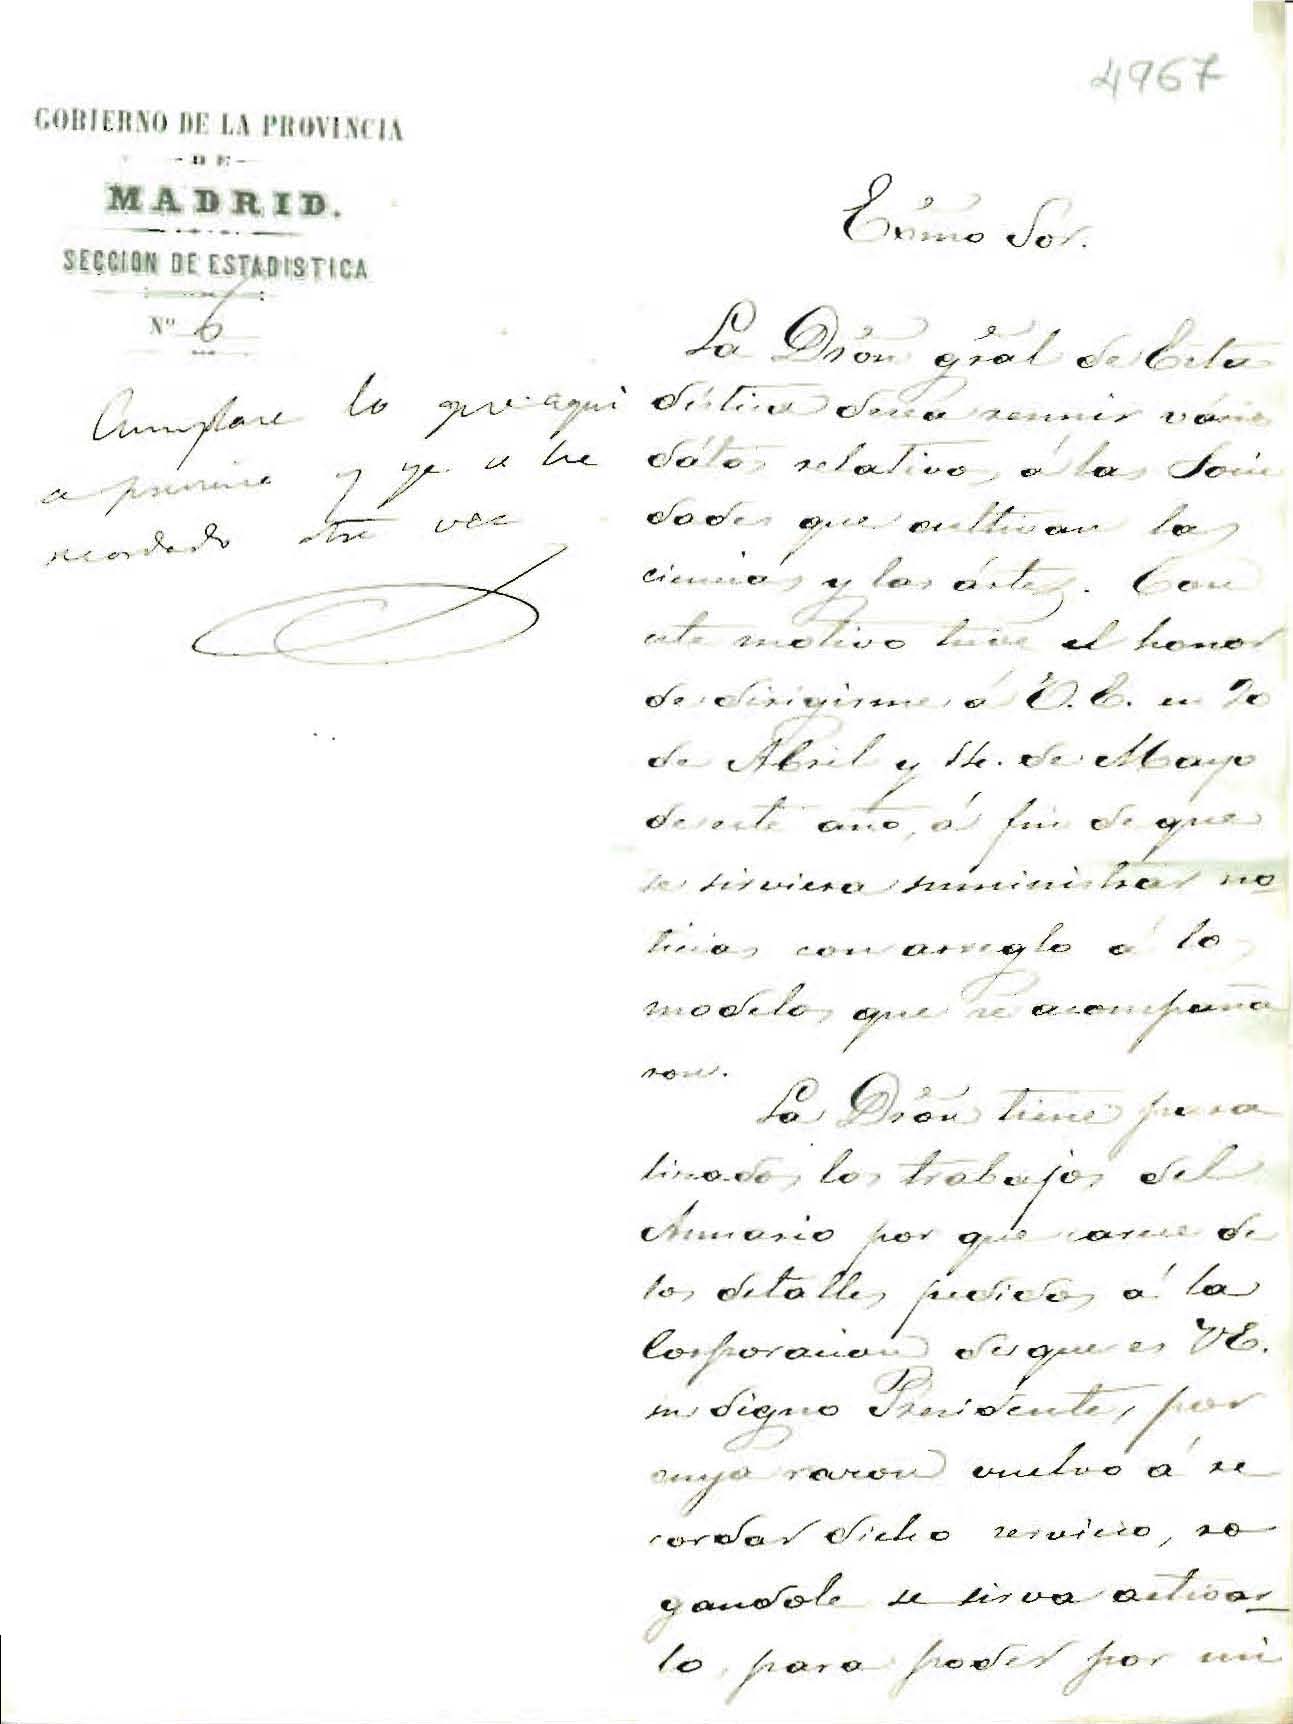 4967
GOBIERNO DE LA PROVINCIA
- DE -
MADRID.
SECCION DE ESTADISTICA
Nº 6
Cumplase lo que aqui
se previene y ya se ha
recordado otra vez
Exmo Sor.
La Dron gral de Esta
distica desea reunir vários
dátos relativos á las Socie
dades que cultivan las
ciencias y las ártes. Con
este motivo tuve el honor
de dirigirme á V. E. en 20
de Abril y 14. de Mayo
de este año, á fin de que
se sirviera suministrar no
ticias con arreglo á los
modelos que se acompaña
ron.
La Dron tiene para
lizados los trabajos del
Anuario por que carece de
los detalles pedidos á la
Corporacion de que es VE.
su digno Presidente, por
cuya razon vuelvo á re
cordar dicho servicio, ro
gandole se sirva activar
lo, para poder por mi